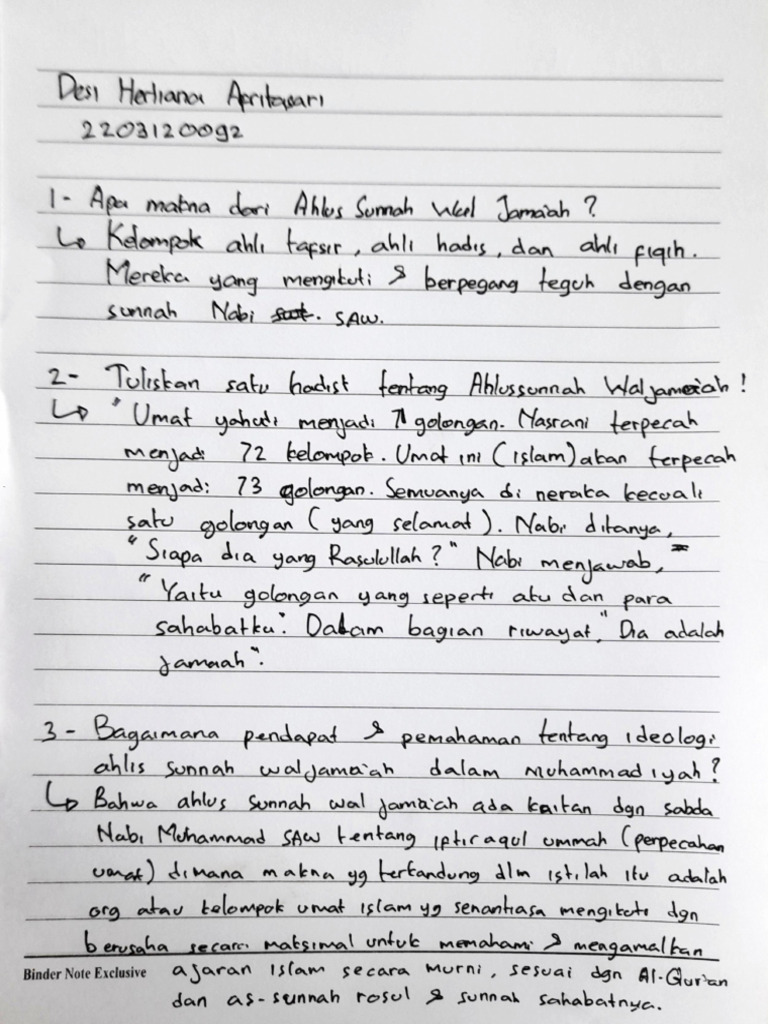 Desi Herliana Apritasari
2203120092
1- Apa makna dari Ahlus Sunnah Wal Jama'ah ?
↳ Kelompok ahli tafsir, ahli hadis, dan ahli fiqih.
Mereka yang mengikuti & berpegang teguh dengan
sunnah Nabi SAW.
2- Tuliskan satu hadist tentang Ahlussunnah Waljama'ah !
↳ " Umat yahudi menjadi 71 golongan. Nasrani terpecah
menjadi 72 kelompok. Umat ini (islam) akan terpecah
menjadi 73 golongan. Semuanya di neraka kecuali
satu golongan (yang selamat). Nabi ditanya,
"Siapa dia yang Rasulullah ?" Nabi menjawab,
"Yaitu golongan yang seperti aku dan para
sahabatku". Dalam bagian riwayat, "Dia adalah
jamaah".
3- Bagaimana pendapat & pemahaman tentang ideologi
ahlis sunnah waljama'ah dalam Muhammadiyah ?
↳ Bahwa ahlus sunnah wal jama'ah ada kaitan dgn sabda
Nabi Muhammad SAW tentang iptiraqul ummah (perpecahan
umat) dimana makna yg terkandung dlm istilah itu adalah
org atau kelompok umat islam yg senantiasa mengikuti dgn
berusaha secara maksimal untuk memahami & mengamalkan
ajaran islam secara murni, sesuai dgn Al-Qur'an
dan as-sunnah rosul & sunnah sahabatnya.
Binder Note Exclusive